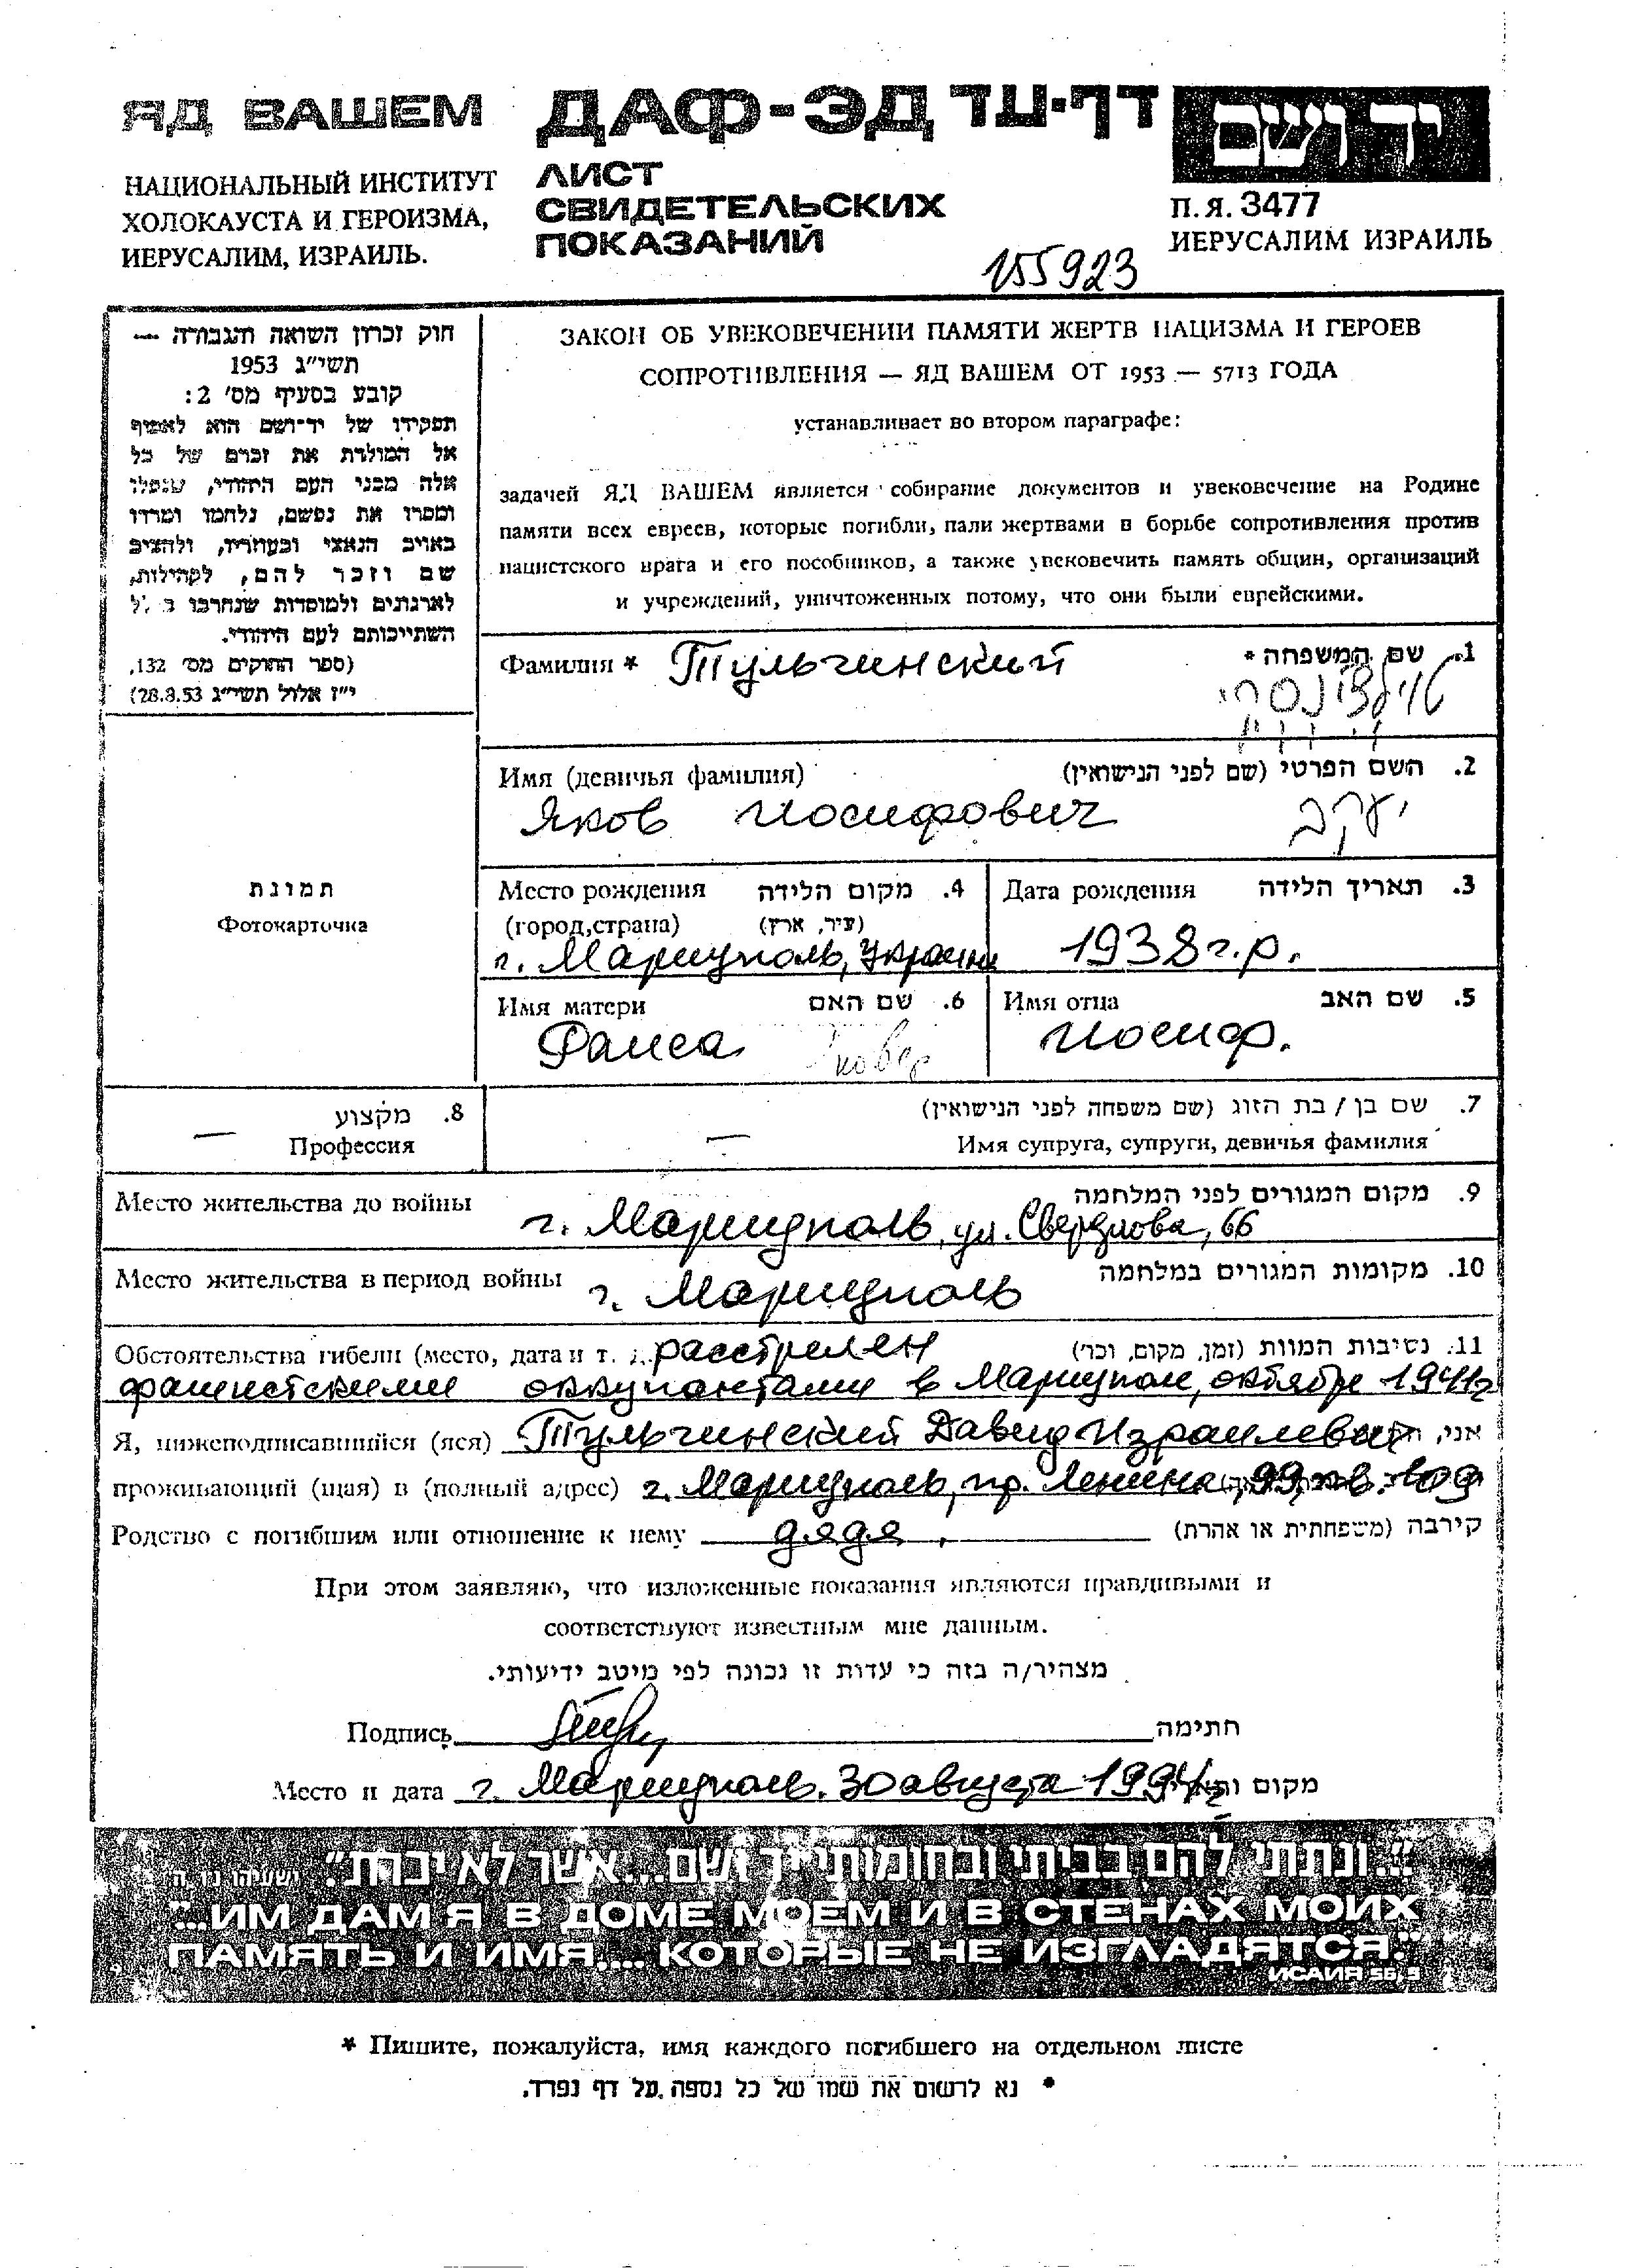 ЯД ВАШЕМ
НАЦИОНАЛЬНЫЙ ИНСТИТУТ
ХОЛОКАУСТА И ГЕРОИЗМА,
ИЕРУСАЛИМ, ИЗРАИЛЬ.
ДАФ-ЭД דף-עד
ЛИСТ
СВИДЕТЕЛЬСКИХ
ПОКАЗАНИЙ
יד ושם
П.Я. 3477
ИЕРУСАЛИМ ИЗРАИЛЬ
155923
חוק זכרון השואה והגבורה —
תשי״ג 1953
קובע בסעיף מס׳ 2:
תפקידו של יד-ושם הוא לאסוף
אל המולדת את זכרם של כל
אלה מבני העם היהודי, שנפלו
ומסרו את נפשם, נלחמו ומרדו
באויב הנאצי ובעוזריו, ולהציב
שם וזכר להם, לקהילות,
לארגונים ולמוסדות שנחרבו
השתייכותם לעם היהודי.
(ספר החוקים מס׳ 132,
י״ז אלול תשי״ג 28.8.53)
ЗАКОН ОБ УВЕКОВЕЧЕНИИ ПАМЯТИ ЖЕРТВ НАЦИЗМА И ГЕРОЕВ
СОПРОТИВЛЕНИЯ — ЯД ВАШЕМ ОТ 1953 — 5713 ГОДА
устанавливает во втором параграфе:
задачей ЯД ВАШЕМ является собирание документов и увековечение на Родине
памяти всех евреев, которые погибли, пали жертвами в борьбе сопротивления против
нацистского врага и его пособников, а также увековечить память общин, организаций
и учреждений, уничтоженных потому, что они были еврейскими.
Фамилия * Тульчинский 1. שם המשפחה *
טולצ'ינסקי
Имя (девичья фамилия) 2. השם הפרטי (שם לפני הנישואין)
Яков Иосифович יעקב
Место рождения 4. מקום הלידה
(город,страна) (עיר, ארץ)
г. Мариуполь, Украина
Дата рождения 3. תאריך הלידה
1938 г.р.
Имя матери 6. שם האם
Раиса
Имя отца 5. שם האב
Иосиф.
8. מקצוע
— Профессия
7. שם בן / בת הזוג (שם משפחה לפני הנישואין)
— Имя супруга, супруги, девичья фамилия
תמונת
Фотокарточка
Место жительства до войны 9. מקום המגורים לפני המלחמה
г. Мариуполь, ул. Свердлова, 66
Место жительства в период войны 10. מקומות המגורים במלחמה
г. Мариуполь
Обстоятельства гибели (место, дата и т. д. расстрелен 11. נסיבות המוות (זמן, מקום, וכו׳)
фашистскими оккупантами в Мариуполе, октябре 1941г
Я, нижеподписавшийся (яся) Тульчинский Давид Израилевич אני,
проживающий (щая) в (полный адрес) г. Мариуполь, пр. Ленина, 99, кв. 109
Родство с погибшим или отношение к нему дядя, קירבה (משפחתית או אחרת)
При этом заявляю, что изложенные показания являются правдивыми и
соответствуют известным мне данным.
מצהיר/ה בזה כי עדות זו נכונה לפי מיטב ידיעותי.
Подпись חתימה
Место и дата г. Мариуполь. 30 августа 1994г מקום
"...ונתתי להם בביתי ובחומותי יד ושם...אשר לא יכרת". ישעיהו נו ה'
"...ИМ ДАМ Я В ДОМЕ МОЕМ И В СТЕНАХ МОИХ
ПАМЯТЬ И ИМЯ.... КОТОРЫЕ НЕ ИЗГЛАДЯТСЯ."
ИСАИЯ 56,5
* Пишите, пожалуйста, имя каждого погибшего на отдельном листе
* נא לרשום את שמו של כל נספה על דף נפרד.